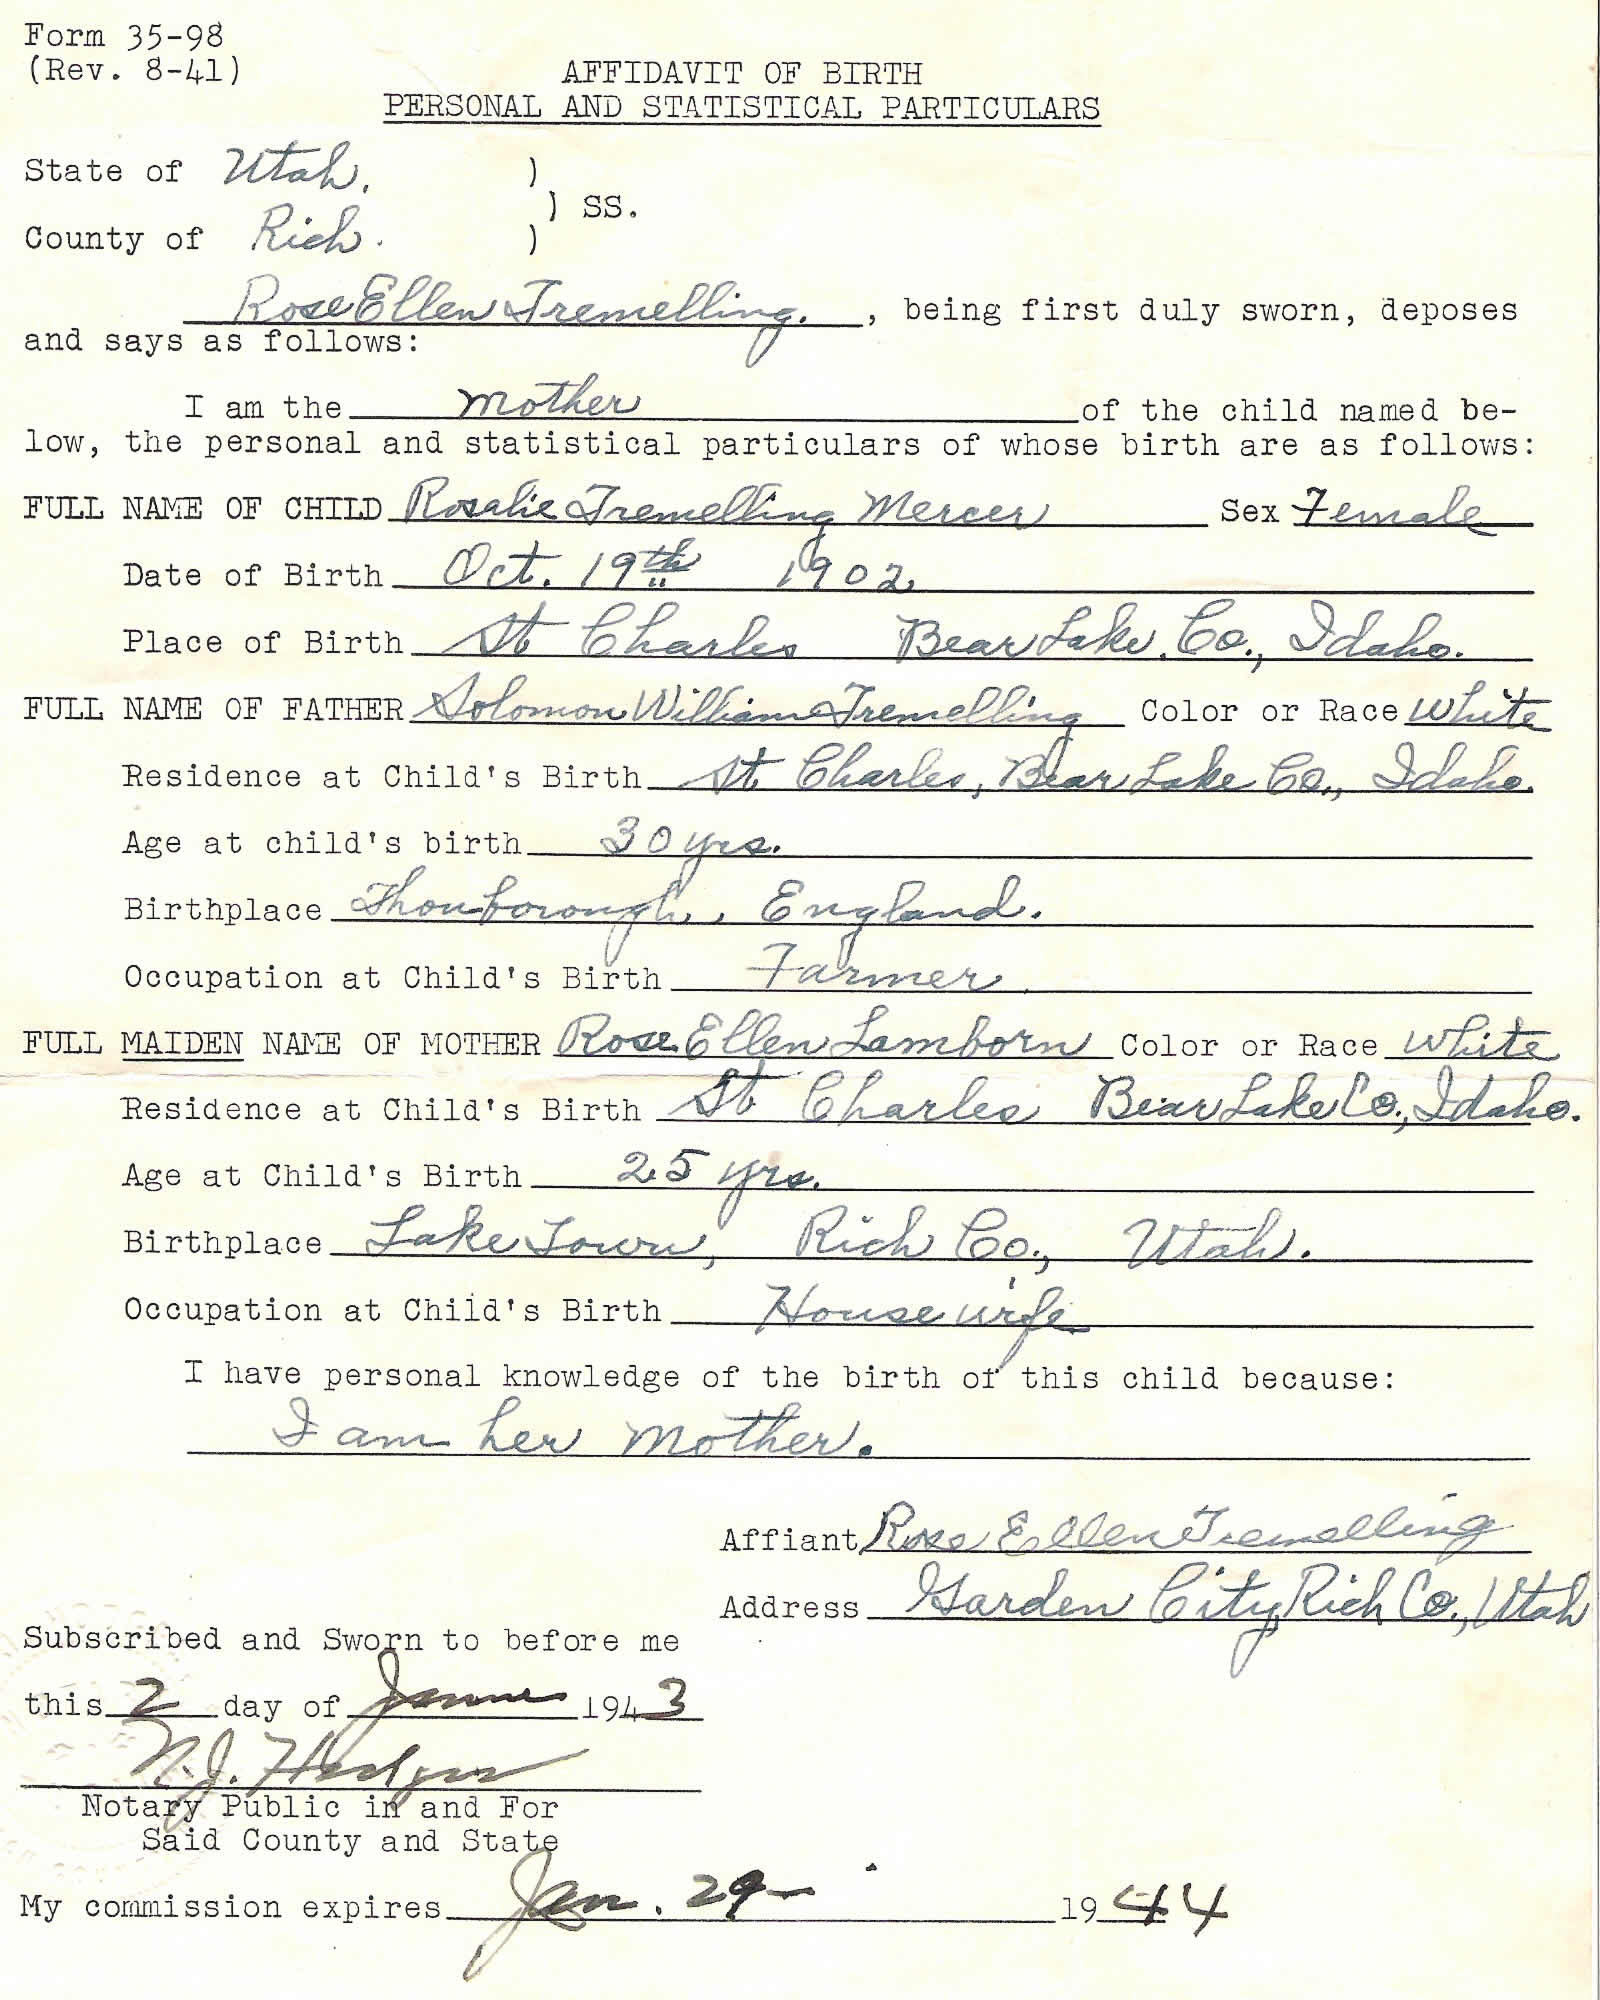 Form 35-98
(Rev. 8-41)
AFFIDAVIT OF BIRTH
PERSONAL AND STATISTICAL PARTICULARS
State of Utah. )
) SS.
County of Rich. )
Rose Ellen Tremelling. , being first duly sworn, deposes
and says as follows:
I am the mother of the child named be-
low, the personal and statistical particulars of whose birth are as follows:
FULL NAME OF CHILD Rosalie Tremelling Mercer Sex Female
Date of Birth Oct. 19th 1902
Place of Birth St Charles Bear Lake Co., Idaho.
FULL NAME OF FATHER Solomon William Tremelling Color or Race white
Residence at Child's Birth St Charles, Bear Lake Co., Idaho.
Age at child's birth 30 yrs.
Birthplace England.
Occupation at Child's Birth Farmer
FULL MAIDEN NAME OF MOTHER Rose Ellen Lamborn Color or Race white
Residence at Child's Birth St Charles Bear Lake Co., Idaho.
Age at Child's Birth 25 yrs.
Birthplace Lake Town, Rich Co., Utah.
Occupation at Child's Birth House wife
I have personal knowledge of the birth of this child because:
I am her mother.
Affiant Rose Ellen Tremelling
Address Garden City, Rich Co., Utah
Subscribed and Sworn to before me
this 2 day of 1943
N.J.
Notary Public in and For
Said County and State
My commission expires Jan. 29 1944